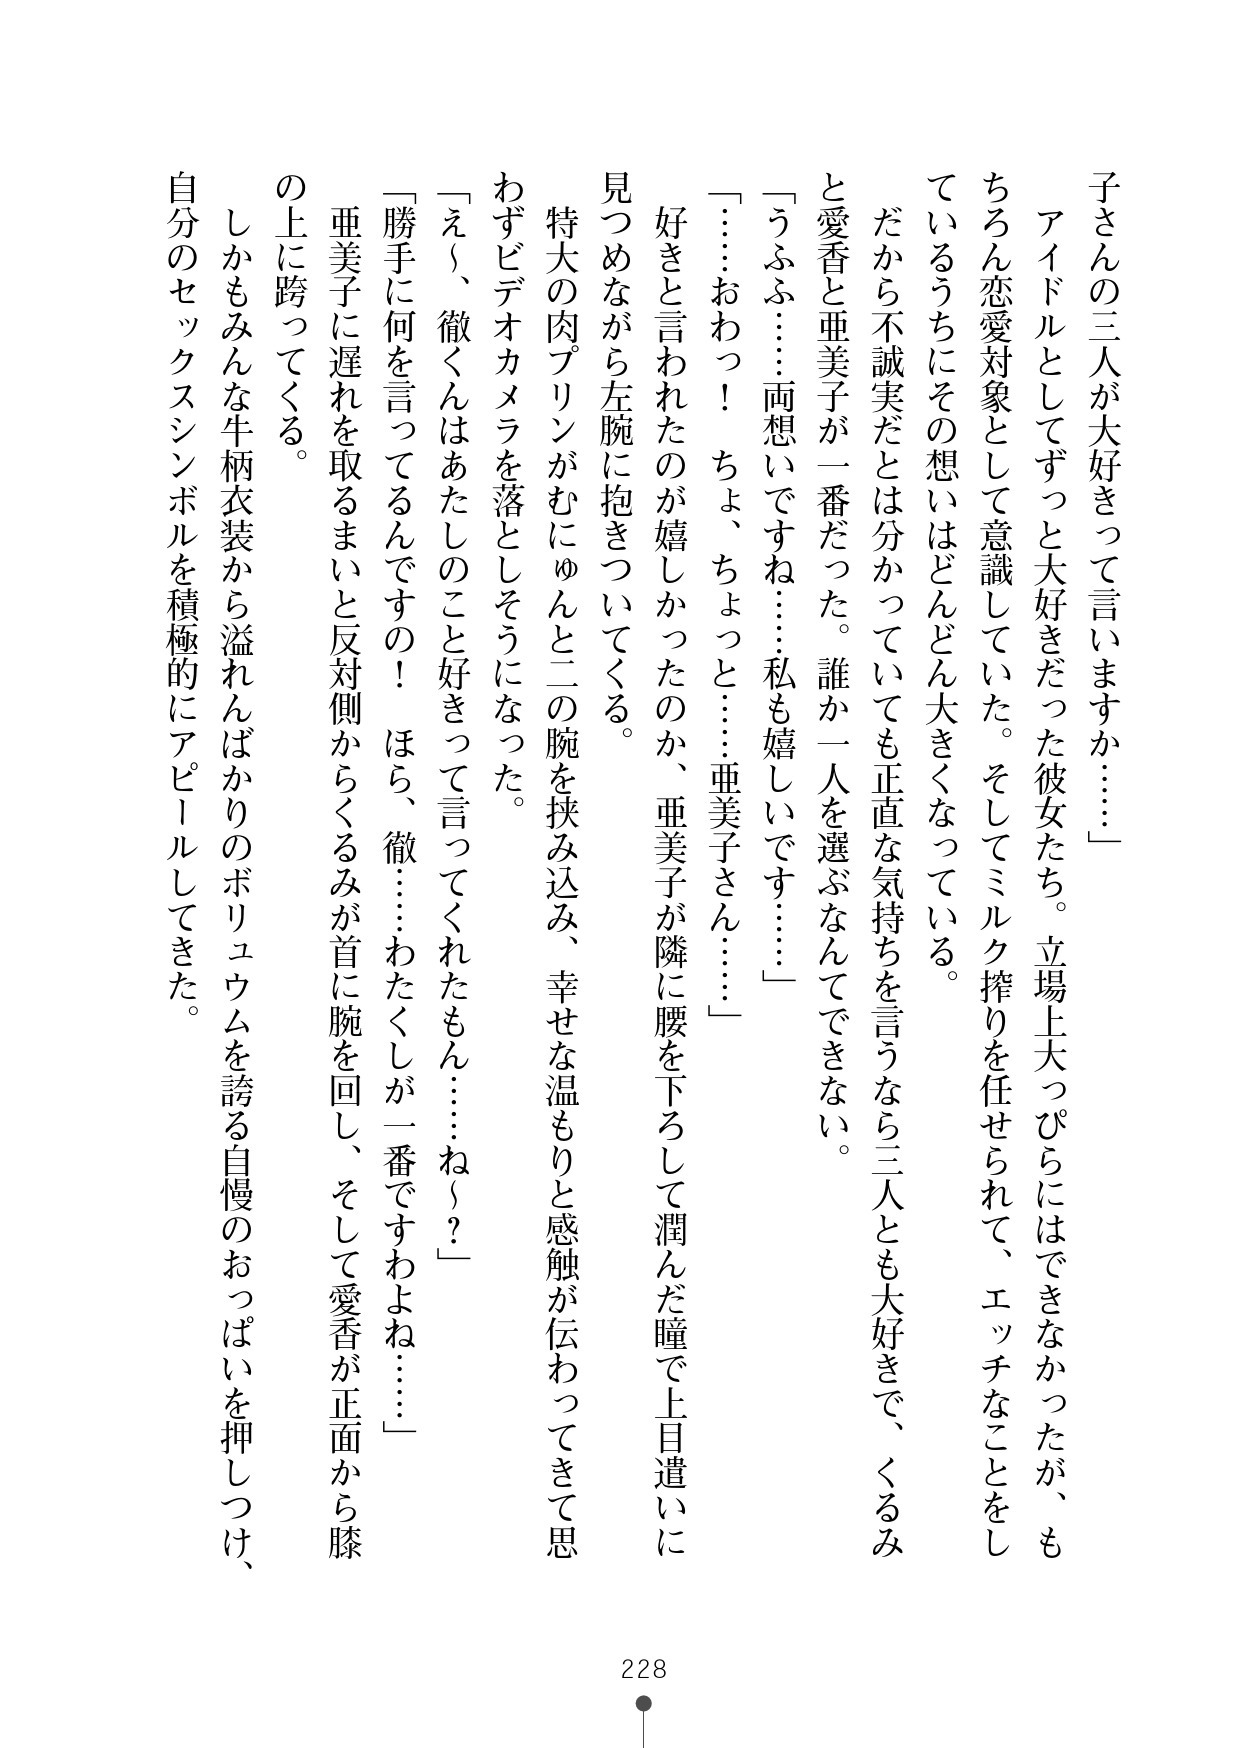 子さんの三人が大好きって言いますか……」
　アイドルとしてずっと大好きだった彼女たち。立場上大っぴらにはできなかったが、も
ちろん恋愛対象として意識していた。そしてミルク搾りを任せられて、エッチなことをし
ているうちにその想いはどんどん大きくなっている。
　だから不誠実だとは分かっていても正直な気持ちを言うなら三人とも大好きで、くるみ
と愛香と亜美子が一番だった。誰か一人を選ぶなんてできない。
「うふふ……両想いですね……私も嬉しいです……」
「……おわっ！　ちょ、ちょっと……亜美子さん……」
　好きと言われたのが嬉しかったのか、亜美子が隣に腰を下ろして潤んだ瞳で上目遣いに
見つめながら左腕に抱きついてくる。
　特大の肉プリンがむにゅんと二の腕を挟み込み、幸せな温もりと感触が伝わってきて思
わずビデオカメラを落としそうになった。
「え～、徹くんはあたしのこと好きって言ってくれたもん……ね～？」
「勝手に何を言ってるんですの！　ほら、徹……わたくしが一番ですわよね……」
　亜美子に遅れを取るまいと反対側からくるみが首に腕を回し、そして愛香が正面から膝
の上に跨ってくる。
　しかもみんな牛柄衣装から溢れんばかりのボリュウムを誇る自慢のおっぱいを押しつけ、
自分のセックスシンボルを積極的にアピールしてきた。
228